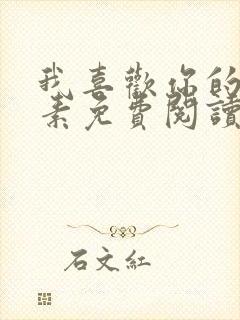 我喜歡你的
素免費閱讀
石文紅